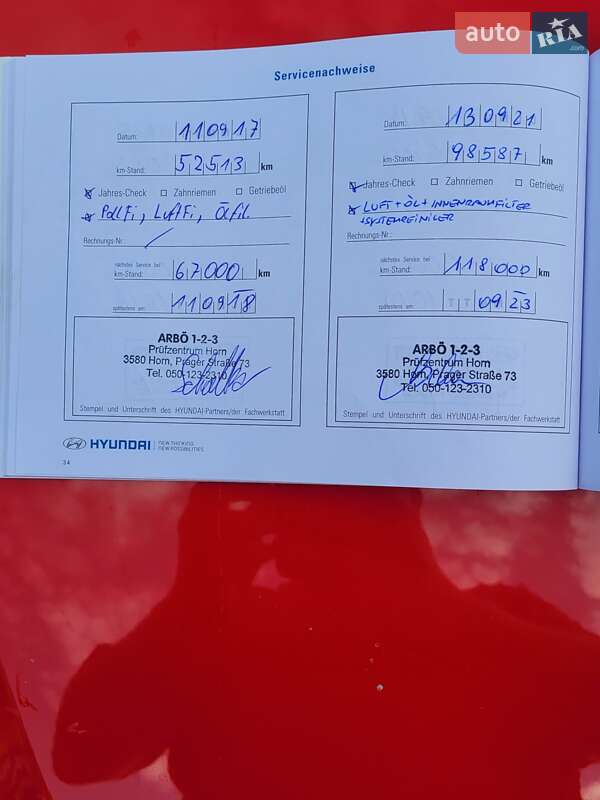 auto RIA .com
Servicenachweise
Datum: 110917
km-Stand: 52513 km
Jahres-Check Zahnriemen Getriebeöl
PollFi, LuftFi, Ölfil.
Rechnungs-Nr.:
nächstes Service bei
km-Stand: 67000 km
spätestens am: 110918
ARBÖ 1-2-3
Prüfzentrum Horn
3580 Horn, Prager Straße 73
Tel. 050-123-2310
Stempel und Unterschrift des HYUNDAI-Partners/der Fachwerkstatt
Datum: 130921
km-Stand: 98587 km
Jahres-Check Zahnriemen Getriebeöl
LUFT + ÖL + INNENRAUMFILTER
+ SYSTEMREINIGER
Rechnungs-Nr.:
nächstes Service bei
km-Stand: 118000 km
spätestens am: TT 0923
ARBÖ 1-2-3
Prüfzentrum Horn
3580 Horn, Prager Straße 73
Tel. 050-123-2310
Stempel und Unterschrift des HYUNDAI-Partners/der Fachwerkstatt
HYUNDAI NEW THINKING.
NEW POSSIBILITIES.
34